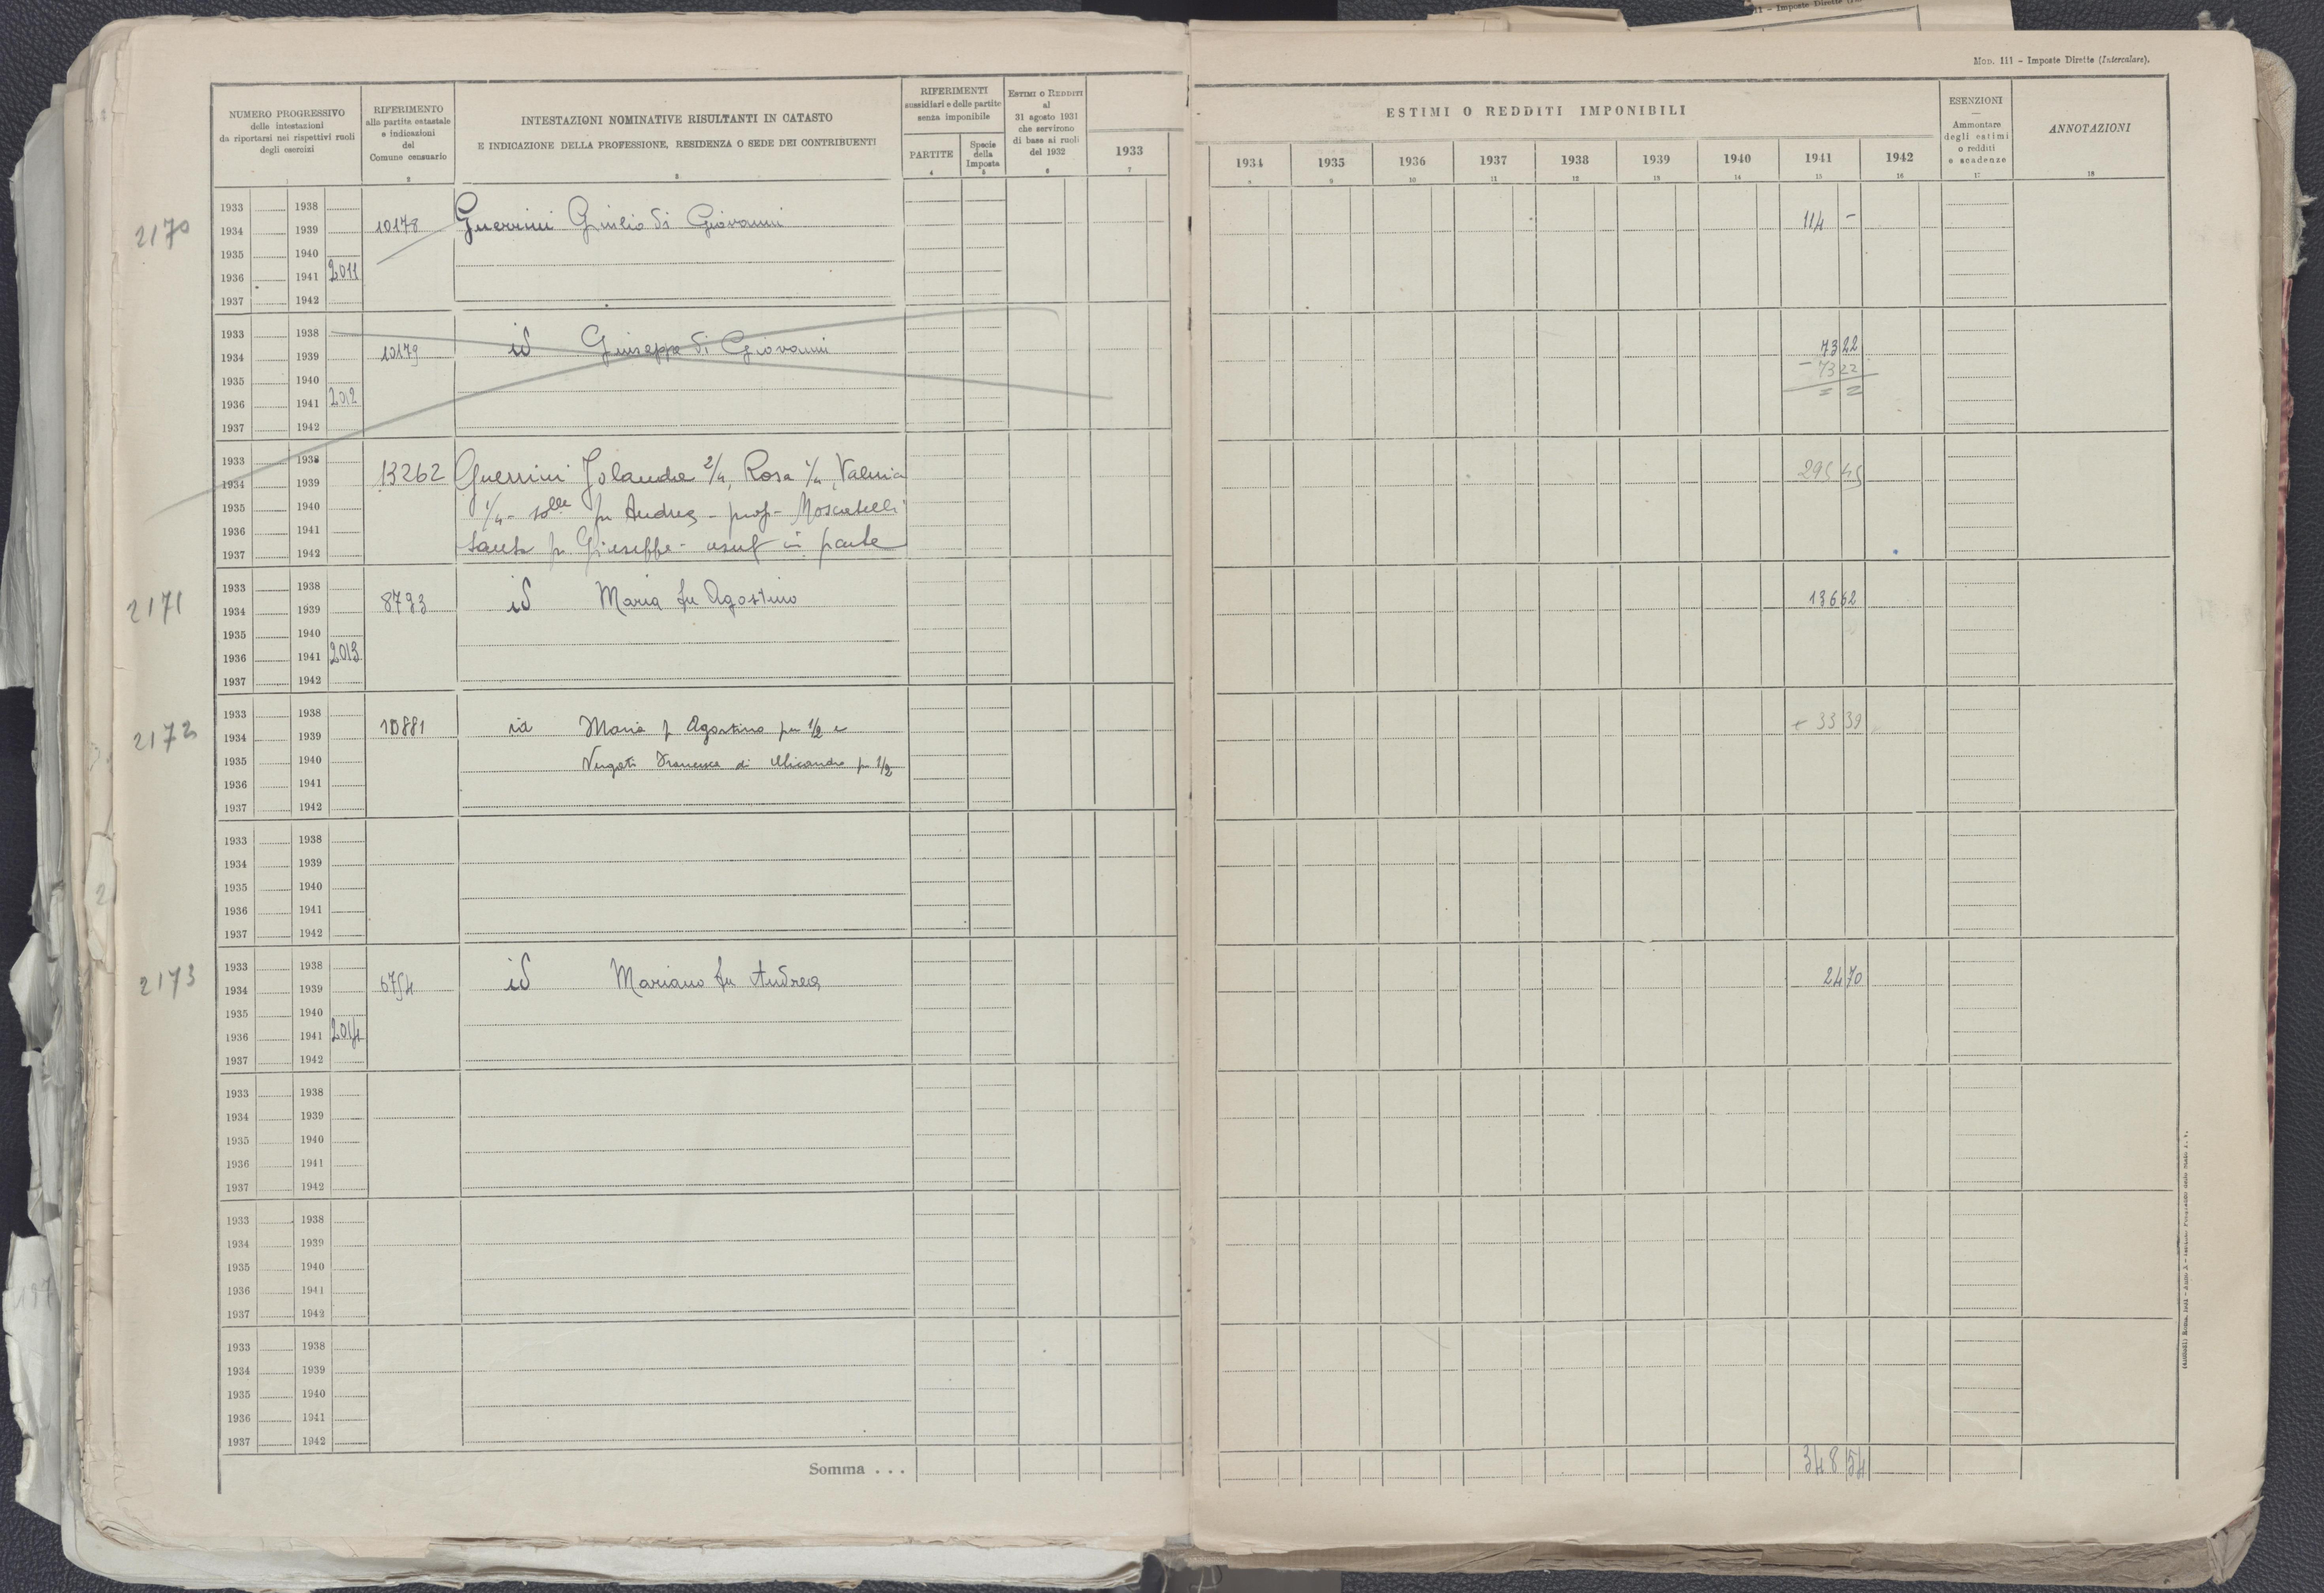 II - Imposte Dirette
Mod. 111 - Imposte Dirette (Intercalare).
NUMERO PROGRESSIVO
delle intestazioni
da riportarsi nei rispettivi ruoli
degli esercizi
1
RIFERIMENTO
alla partita catastale
e indicazioni
del
Comune censuario
2
INTESTAZIONI NOMINATIVE RISULTANTI IN CATASTO
E INDICAZIONE DELLA PROFESSIONE, RESIDENZA O SEDE DEI CONTRIBUENTI
3
RIFERIMENTI
sussidiari e delle partite
senza imponibile
PARTITE
4
Specie
della
Imposta
5
Estimi o Redditi
al
31 agosto 1931
che servirono
di base ai ruoli
del 1932
6
1933
7
ESTIMI O REDDITI IMPONIBILI
1934 1935 1936 1937 1938 1939 1940 1941 1942
8 9 10 11 12 13 14 15 16
ESENZIONI
—
Ammontare
degli estimi
o redditi
e scadenze
17
ANNOTAZIONI
18
1933 1938
2170 1934 1939 10178 Guerrini Giulio di Giovanni 114 -
1935 1940
1936 1941 2011
1937 1942
1933 1938
1934 1939 10179 id Giuseppe di Giovanni 73 22
1935 1940 - 73 22
1936 1941 2012 = =
1937 1942
1933 1938
1934 1939 13262 Guerrini Jolanda 2/4, Rosa 1/4, Valeria 295 45
1935 1940 1/4 - solle fu Andrea - prop - Moscatelli
1936 1941
1937 1942 Santa fu Giuseppe - usuf in parte
1933 1938
2171 1934 1939 8793 id Maria fu Agostino 136 62
1935 1940
1936 1941 2013
1937 1942
1933 1938
2172 1934 1939 10881 id Maria f Agostino per 1/2 e + 33 39
1935 1940 Vergati Francesca di per 1/2
1936 1941
1937 1942
1933 1938
1934 1939
1935 1940
1936 1941
1937 1942
1933 1938
2173 1934 1939 6754 id Mariano fu Andrea 24 70
1935 1940
1936 1941 2014
1937 1942
1933 1938
1934 1939
1935 1940
1936 1941
1937 1942
1933 1938
1934 1939
1935 1940
1936 1941
1937 1942
1933 1938
1934 1939
1935 1940
1936 1941
1937 1942
Somma . . . 348 54